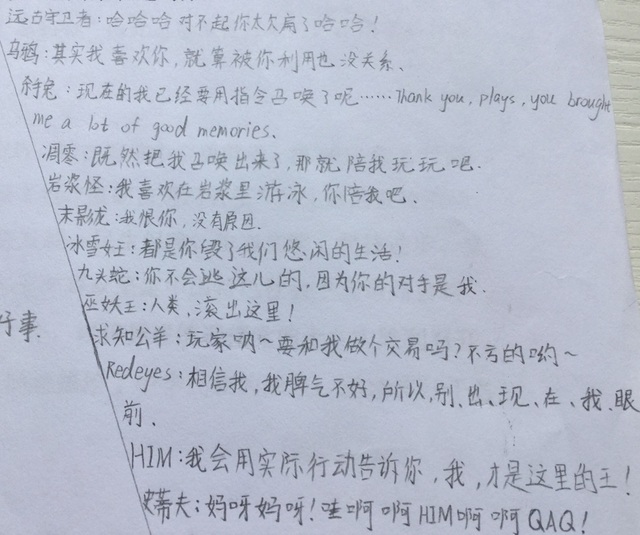 远古守卫者：哈哈哈对不起你太欠扁了哈哈！
乌鸦：其实我喜欢你，就算被你利用也没关系、
杀手兔：现在的我已经要用指令召唤了呢……Thank you, plays, you brought
me a lot of good memories、
凋零：既然把我召唤出来了，那就陪我玩玩吧．
岩浆怪：我喜欢在岩浆里游泳，你陪我吧、
末影龙：我恨你，没有原因．
冰雪女王：都是你毁了我们悠闲的生活！
九头蛇：你不会逃这儿的，因为你的对手是我．
巫妖王：人类，滚出这里！
好事．
求知公羊：玩家呐～要和我做个交易吗？不亏的哟～
Redeyes：相信我，我脾气不好，所以，别、出、现、在、我、眼
前、
HIM：我会用实际行动告诉你，我，才是这里的王！
史蒂夫：妈呀妈呀！哇啊啊HIM啊啊QAQ！